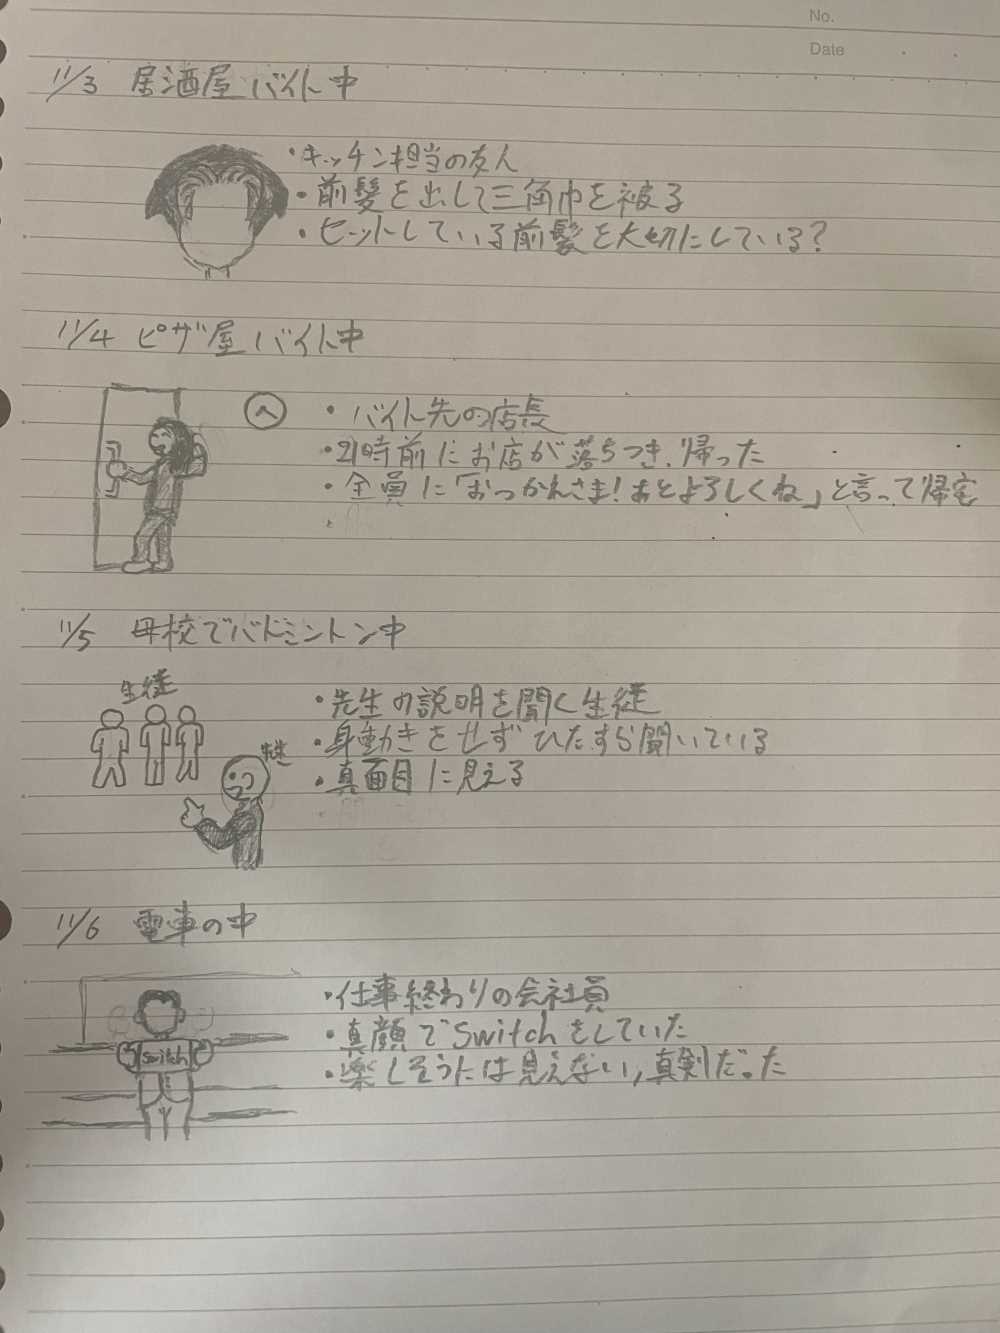 No.
Date
11/3 居酒屋バイト中
・キッチン担当の友人
・前髪を出して三角巾を被る
・セットしている前髪を大切にしている?
11/4 ピザ屋バイト中
・バイト先の店長
・21時前にお店が落ちつき、帰った
・全員に「おつかれさま!あとよろしくね」と言って帰宅
11/5 母校でバドミントン中
生徒
先生
・先生の説明を聞く生徒
・身動きをせずひたすら聞いている
・真面目に見える
11/6 電車の中
switch
・仕事終わりの会社員
・真顔でswitchをしていた
・楽しそうには見えない,真剣だった